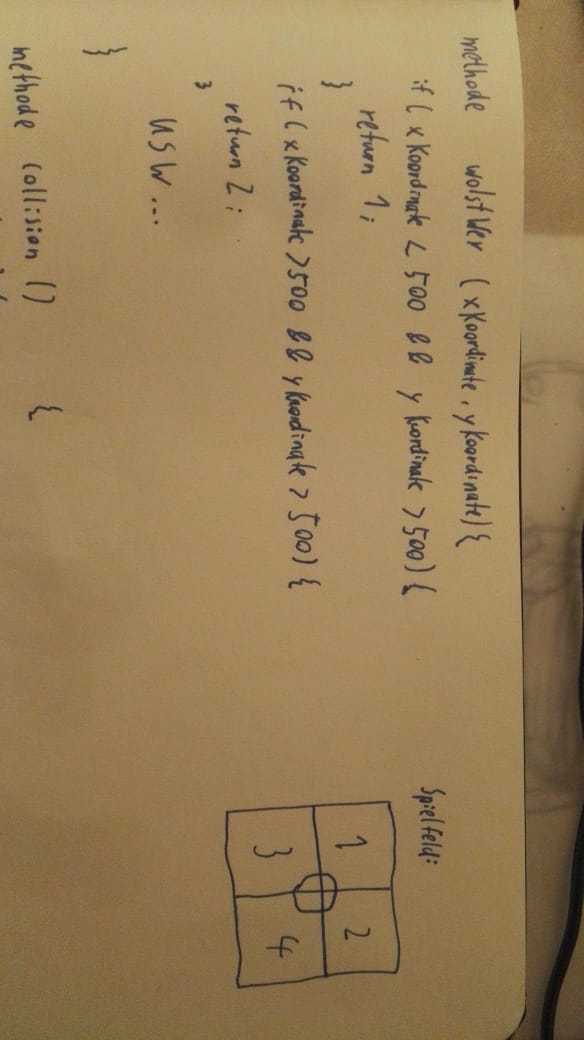 methode wolstWer (xKoordinate, yKoordinate){
if( xKoordinate < 500 && yKoordinate >500){
return 1;
}
if( xKoordinate >500 && yKoordinate > 500) {
return 2;
}
usw...
}
methode Collision () {
Spielfeld:
1 2
3 4